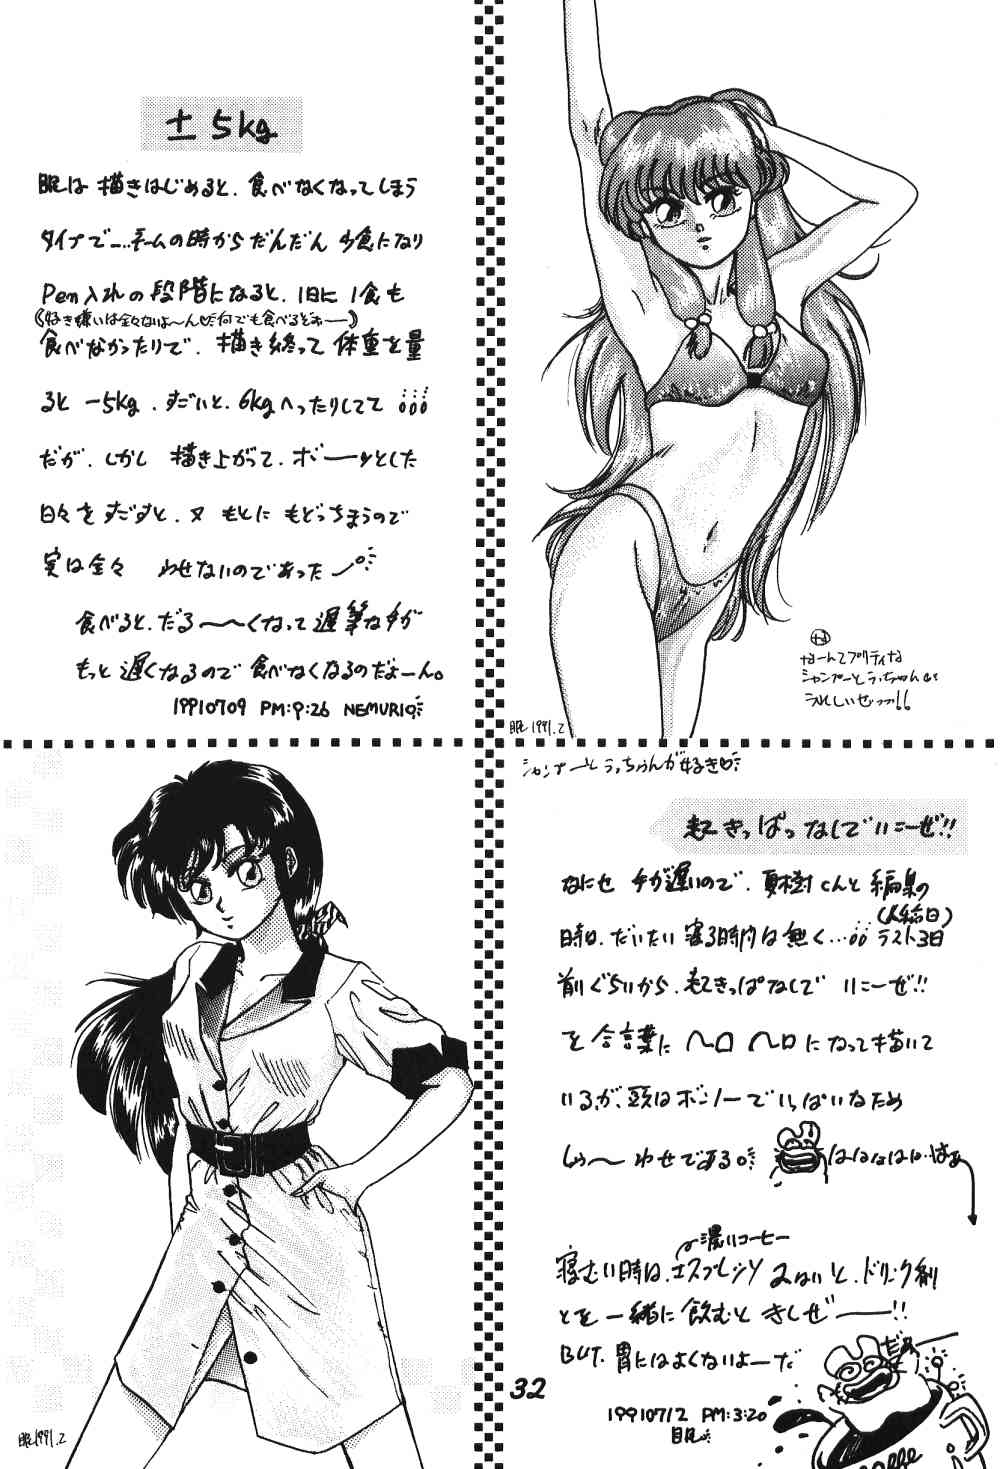 ±5kg
眠は 描きはじめると、食べなくなってしまう
タイプで…ネームの時からだんだん 少食になり
Pen入れの段階になると、1日に1食も
(好き嫌いは全々ないよ〜ん 何でも食べるどォ——)
食べなかったりで、描き終って 体重を量
ると −5kg、すごいと、6kgへったりしてて
だが、しかし 描き上がって、ボーーッとした
日々をすごすと、又 もとに もどっちまうので
実は全々 やせないのであった
食べると、だる〜〜くなって遅筆な手が
もっと遅くなるので 食べなくなるのだよーん。
19910709 PM:9:26 NEMURI
なーんてプリティな
シャンプーとうっちゃん
うれしいぜっっ!!
眠 1991.2
シャンプーとうっちゃんが好き♡
起きっぱっなしでいこーぜ!!
なにせ 手が遅いので、夏樹くんと編集の
(〆切日)
時は、だいたい寝る時間は無く…ラスト3日
前ぐらいから、起きっぱなしで いこーぜ!!
を合言葉に ヘロヘロになって描いて
いるが、頭はボンノーでいっぱいなため
しあ〜わせである。
はははははは…はぁ
濃いコーヒー
寝むい時は、エスプレッソ みないと、ドリンク剤
とを一緒に飲むと きくぜーー!!
BUT、胃にはよくないよーだ
32
19910712 PM:3:20
眠
眠 1991.2